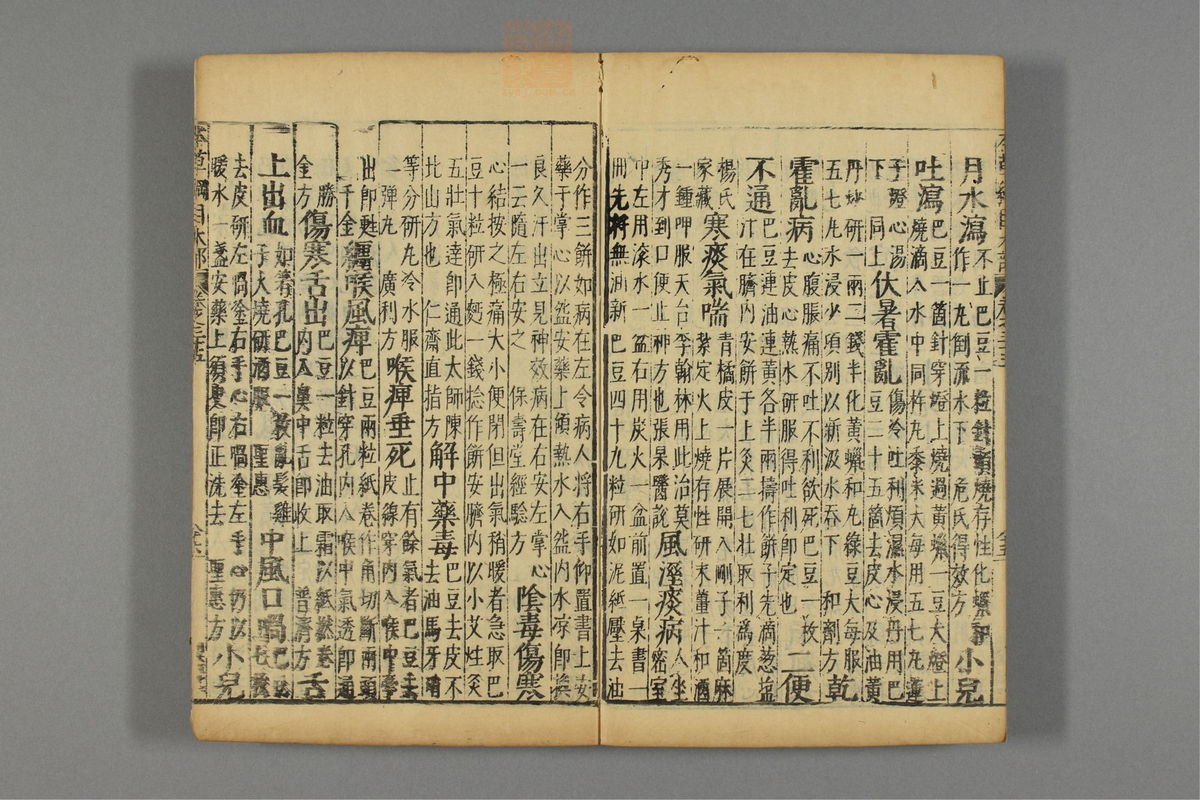 月水瀉不止巴豆一粒針頭燒存性化蠟和
作一丸倒流水下 危氏得效方 小兒
吐瀉巴豆一箇針穿燈上燒過黃蠟一豆大燈上
燒滴入水中同杵丸黍米大每用五七丸蓮
子燈心湯
下 同上 伏暑霍亂傷冷吐利煩
豆二十五箇去皮心及油黃
丹炒研一兩二錢半化黃蠟和丸綠豆大每服
五七丸水浸少頃別以新汲水吞下 和劑方 乾
霍亂病心腹脹痛不吐不利欲死巴豆一枚
去皮心熱水研服得吐利即定也 二便
不通巴豆連油連黃各半兩擣作餅子先滴葱鹽
汁在臍內安餅于上灸二七壯取利爲度
楊氏
家藏 寒痰氣喘青橘皮一片展開入剛子一箇麻
紮定火上燒存性研末薑汁和酒
一鍾呷服天台李翰林用此治莫
秀才到口便止神方也張杲醫說 風溼痰病人坐
密室
中左用滾水一盆右用炭火一盆前置一桌書一
冊先將無油新巴豆四十九粒研如泥紙壓去油
分作三餅如病在左令病人將右手仰置書上安
藥于掌心以盌安藥上傾熱水入盌內水凉即換
良久汗出立見神效病在右安左掌心
一云隨左右安之 保壽堂經驗方 陰毒傷寒
心結按之極痛大小便閉但出氣稍暖者急取巴
豆十粒研入麪一錢捻作餅安臍內以小艾炷灸
五壯氣達即通此太師陳
北山方也 仁齋直指方 解中藥毒巴豆去皮不
去油馬牙硝
等分研丸冷水服
一彈丸 廣利方 喉痺垂死止有餘氣者巴豆去
皮線穿內入喉中牽
出即甦
千金 纏喉風痺巴豆兩粒紙卷作角切斷兩頭
以針穿孔內入喉中氣透即通
勝
金方 傷寒舌出巴豆一粒去油取霜以紙撚卷
內入鼻中舌即收上 普濟方 舌
上出血如簪孔巴豆一枚亂髮雞
子大燒研酒服 聖惠 中風口喎巴豆
七枚
去皮研左喎塗右手心右喎塗左手心仍以
暖水一盞安藥上須臾即正洗去 聖惠方 小兒
本草綱目木部